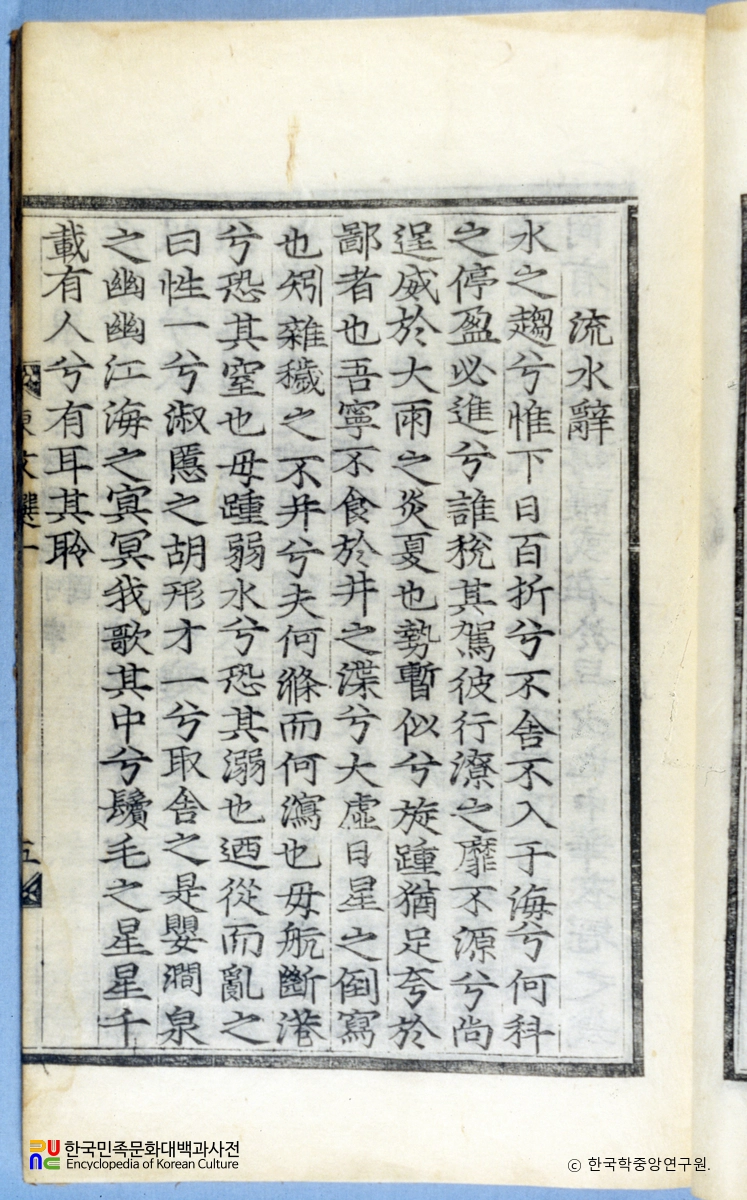 流水辭
水之趨兮惟下日百折兮不舍不入于海兮何科
之停盈必進兮誰稅其駕彼行潦之靡不源兮尚
逞威於大雨之炎夏也勢暫似兮旋踵猶足夸於
鄙者也吾寧不食於井之渫兮大虛日星之倒寫
也矧雜穢之不幷兮夫何滌而何瀉也毋航斷港
兮恐其窒也毋踵弱水兮恐其溺也迺從而亂之
曰性一兮淑慝之胡形才一兮取舍之是嬰澗泉
之幽幽江海之冥冥我歌其中兮鬢毛之星星千
載有人兮有耳其聆
東文選一 五
한국민족문화대백과사전
Encyclopedia of Korean Culture
© 한국학중앙연구원.